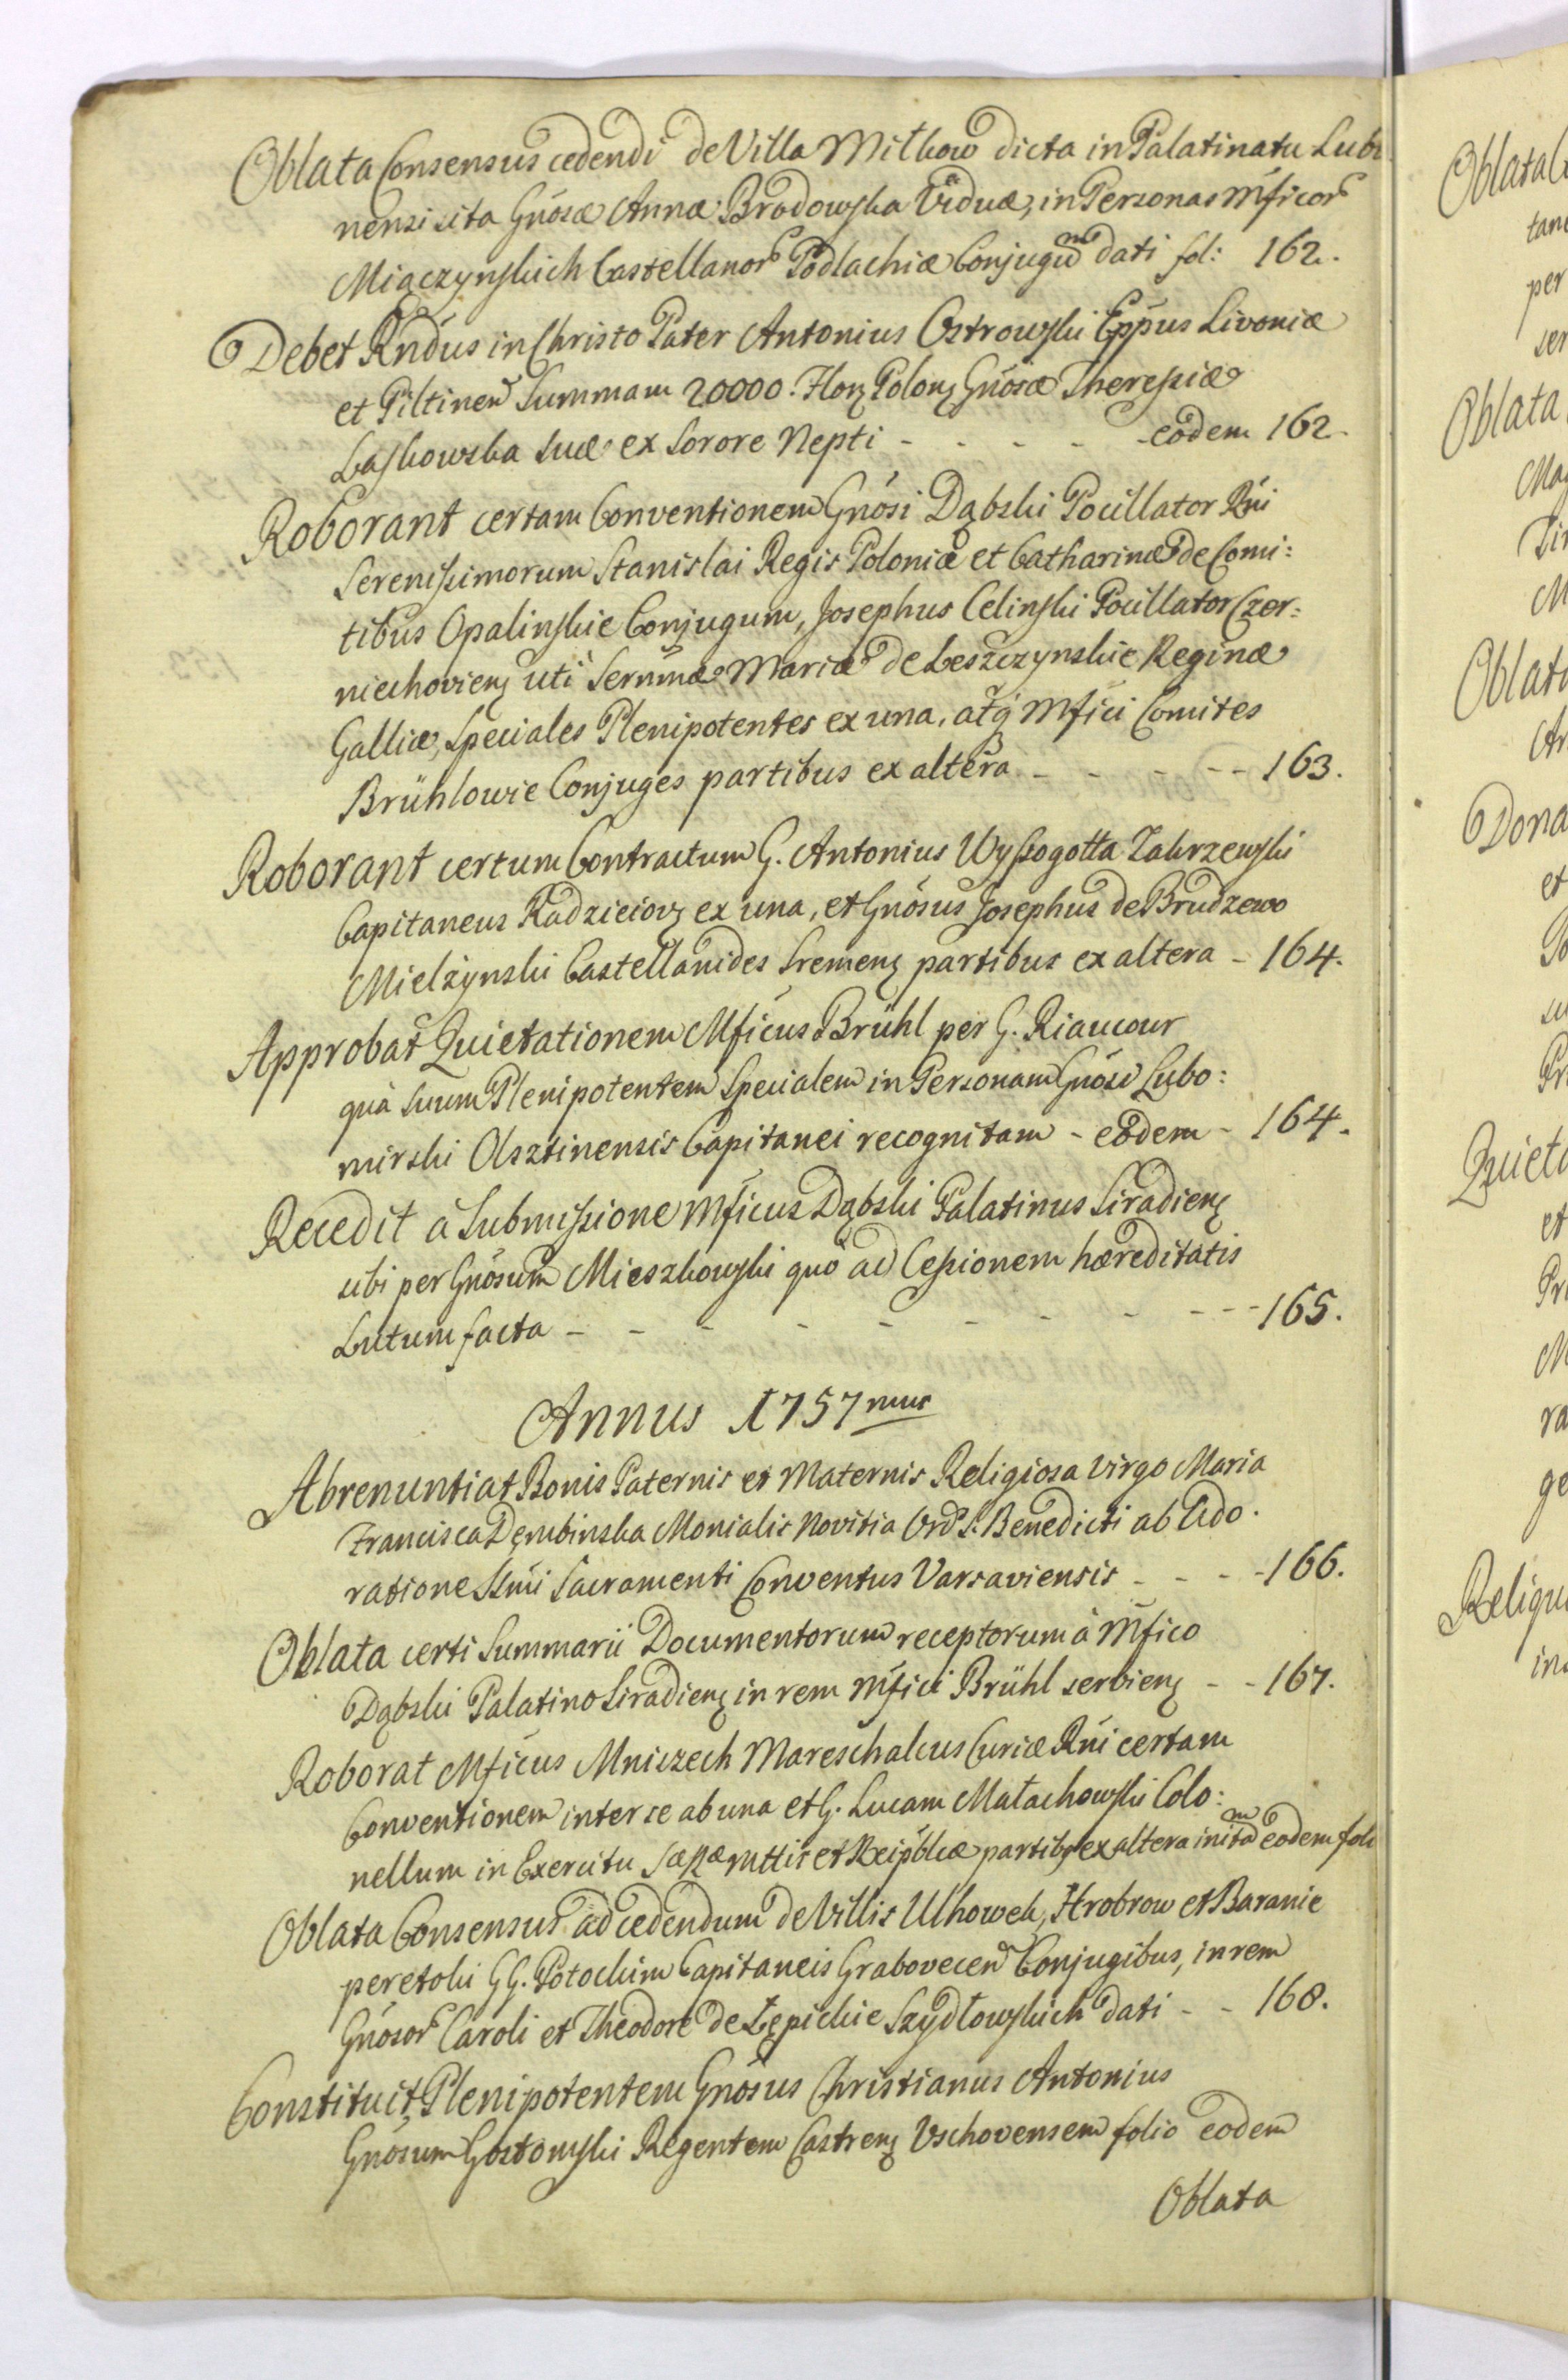 Oblata Consensus cedendi de Villa Mitkow dicta in Palatinatu Lubl
nensi sita Gnosæ Annæ Brodowska Viduæ, in Personas Mficor
Miączynskich Castellanor Podlachiæ Conjugum dati fol: 162.
Debet Rndus in Christo Pater Antonius Ostrowski Eppus Livoniæ
et Piltinen Summam 20000. Flor Polon Gnosæ Theresiæ
Laskowska suæ ex Sorore Nepti - - - - - eodem 162.
Roborant certam Conventionem Gnosi Dąbski Pocillator Rni
Serenissimorum Stanislai Regis Poloniæ et Catharinæ de Comi:
tibus Opalinskie Conjugum, Josephus Celinski Pocillator Czer:
niechovien uti Sermæ Mariæ de Leszczynskie Reginæ
Galliæ, Speciales Plenipotentes ex una, atq Mfici Comites
Brühlowie Conjuges partibus ex altera - - - - - 163.
Roborant certum Contractum G. Antonius Wyssogotta Zakrzewski
Capitaneus Radzieiov ex una, et Gnosus Josephus de Brudzewo
Mielżynski Castellanides Sremen partibus ex altera - 164.
Approbat Quietationem Mficus Brühl per G. Riaucour
quà suum Plenipotentem Specialem in Personam Gnosi Lubo:
mirski Olsztinensis Capitanei recognitam - eodem - 164.
Recedit à Submissione Mficus Dąbski Palatinus Siradien
sibi per Gnosum Mieszkowski quo ad Cessionem hæreditatis
Lutum facta - - - - - - - - - - 165.
Annus 1757mus
Abrenuntiat Bonis Paternis et Maternis Religiosa Virgo Maria
Francisca Dembinska Monialis Novitia Ord S. Benedicti ab Ado.
ratione SSmi Sacramenti Conventus Varsaviensis - - - - 166.
Oblata certi Summarii Documentorum receptorum à Mfico
Dąbski Palatino Siradien in rem Mfici Brühl servien - - 167.
Roborat Mficus Mniszech Mareschalcus Curiæ Rni certam
Conventionem inter se ab una et G. Lucam Małachowski Colo:
nellum in Exercitu Sæ Ræ Mttis et Reipblicæ partibus ex altera initam eodem foli
Oblata Consensus ad cedendum de Villis Uhowek, Hrobrow et Baranie
peretoki GG. Potockim Capitaneis Grabovecen Conjugibus, in rem
Gnosor Caroli et Theodore de Łępickie Szydłowskich dati - - 168.
Constituit Plenipotentem Gnosus Christianus Antonius
Gnosum Gostomski Regentem Castren Vschovensem folio eodem
Oblata
Oblata
tan
per
ser
Oblata
Ma
Oblat
Dona
et
Quieta
et
Pr
ra
ge
Reliqu
in